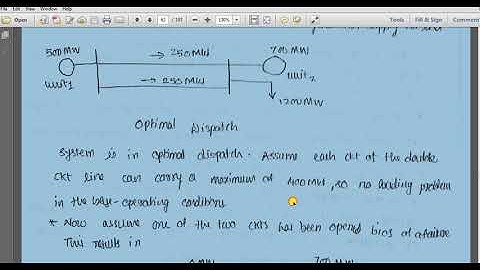 File Edit View Window Help
Open
62 / 101
130%
Tools Fill & Sign Comment
500MW → 250MW 700MW
unit1 → 250MW unit2
1200MW
Optimal Dispatch
System is in optimal dispatch. Assume each ckt of the double
ckt line can carry a maximum of 400MW, so no loading problem
in the base-operating conditions.
* Now assume one of the two ckts has been opened bcos of a failure
This results in